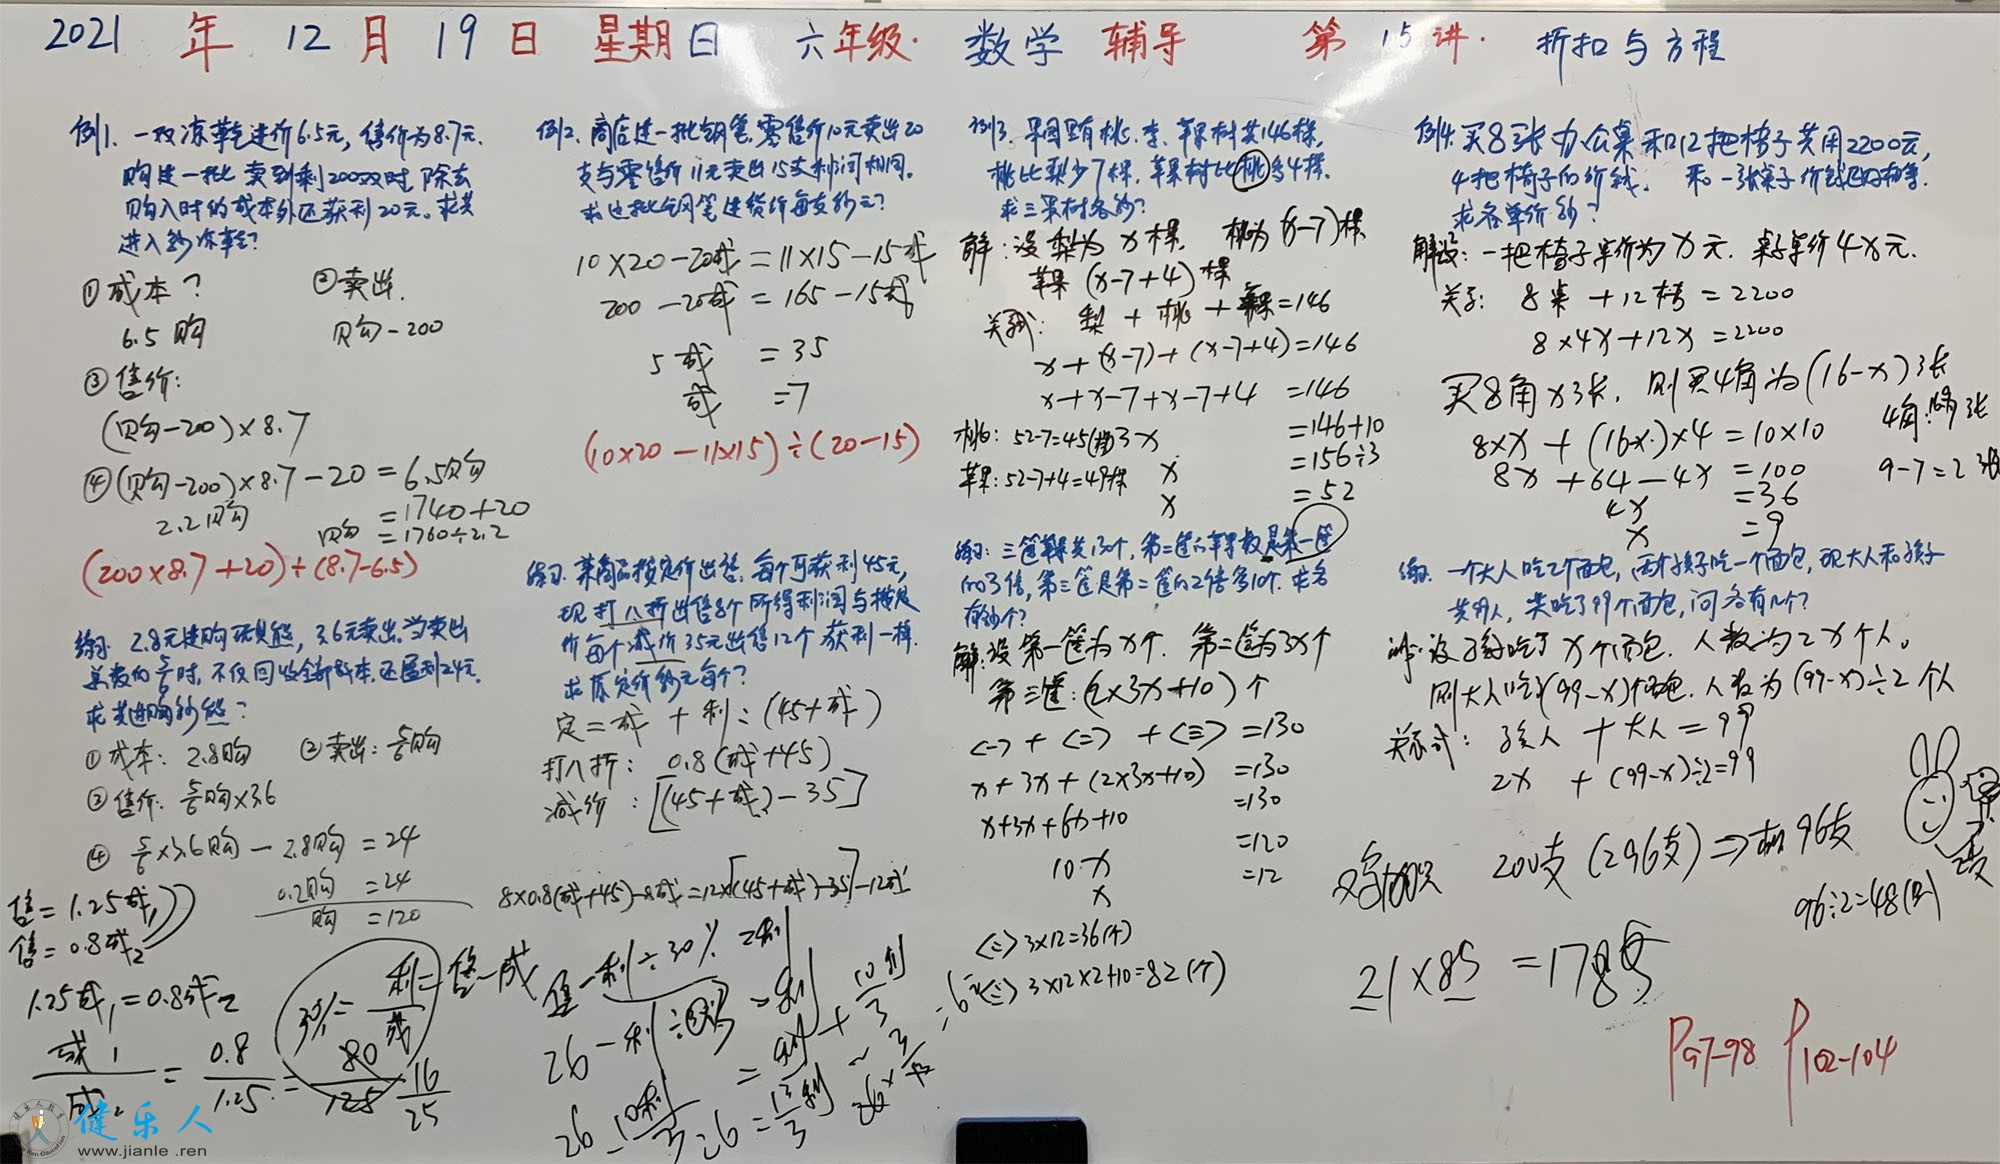 2021 年 12 月 19 日 星期日 六年级. 数学 辅导 第 15 讲. 折扣与方程
例1. 一双凉鞋进价6.5元, 售价为8.7元.
购进一批 卖到剩200双时 除去
购入时的成本外还获利20元。求共
进入多少凉鞋?
① 成本? ② 卖出.
6.5购 购-200
③ 售价:
(购-200)×8.7
④ (购-200)×8.7-20=6.5购
2.2购 =1740+20
购 =1760÷2.2
(200×8.7+20)÷(8.7-6.5)
练习. 2.8元进购玩具熊, 3.6元卖出. 当卖出
总数的5/6时, 不仅回收全部成本. 还盈利24元.
求共进购多少熊?
① 成本: 2.8购 ② 卖出: 5/6购
③ 售价: 5/6购×3.6
④ 5/6×3.6购-2.8购=24
0.2购=24
购=120
售=1.25成1
售=0.8成2
1.25成1=0.8成2
成1/成2=0.8/1.25=80/125 16/25
利=售-成
例2. 商店进一批钢笔. 零售价10元卖出20
支与零售价11元卖出15支利润相同。
求这批钢笔进货价每支多少元?
10×20-20成=11×15-15成
200-20成=165-15成
5成=35
成=7
(10×20-11×15)÷(20-15)
练习. 某商品按定价出售. 每个可获利45元,
现打八折出售8个所得利润与按定
价每个减价35元出售12个获利一样.
求原定价多少元每个?
定=成+利:(45+成)
打八折: 0.8(成+45)
减价: [(45+成)-35]
8×0.8(成+45)-8成=12×[(45+成)-35]-12成
售-利÷30%=利
例3. 果园里有桃. 李. 苹果树共146棵,
桃比梨少7棵. 苹果树比桃多4棵.
求三果树各多少?
解:设梨为x棵. 桃为(x-7)棵
苹果(x-7+4)棵
关系式: 梨+桃+苹果=146
x+(x-7)+(x-7+4)=146
x+x-7+x-7+4=146
桃: 52-7=45(棵) 3x =146+10
苹果: 52-7+4=49棵 x =156÷3
x =52
练习: 三筐苹果共130个, 第二筐的苹果数是第一筐
的3倍, 第三筐是第二筐的2倍多10个. 求各
有多少个?
解:设第一筐为x个. 第二筐为3x个
第三筐:(2×3x+10)个
<一>+<二>+<三>=130
x+3x+(2×3x+10)=130
x+3x+6x+10 =130
10x =120
x =12
<二>3×12=36(个)
<三>3×12×2+10=82(个)
例4. 买8张办公桌和12把椅子共用2200元,
4把椅子的价钱. 和一张桌子价钱正好相等.
求各单价多少?
解设: 一把椅子单价为x元. 桌子单价4x元.
关系: 8桌+12椅=2200
8×4x+12x=2200
买8角x张, 则买4角为(16-x)张
8×x+(16-x)×4=10×10
8x+64-4x=100
4x =36
x =9
9-7=2张
练习. 一个大人吃2个面包, 两个孩子吃一个面包, 现大人和孩子
共99人, 共吃了99个面包, 问各有几个?
解:设孩子吃了x个面包. 人数为2x个人。
则大人吃了(99-x)个面包. 人数为(99-x)÷2个人
关系式: 孩人+大人=99
2x+(99-x)÷2=99
200支(296支)⇒ 96支
96÷2=48(只)
21×85=1785
P97-98 P102-104
健乐人
www.jianle.ren